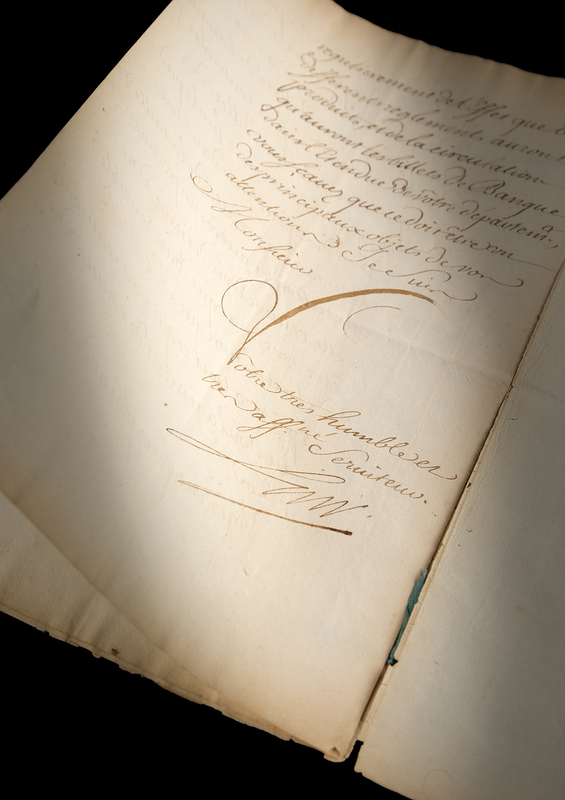 regulierement de l'effet que l
differents reglements auront
produits, et de la circulation
qu'auront les billets de Banque
dans l'étendue de votre departem.t,
vous sçavez que ce doit être un
des principaux objets de vos
attentions. Je suis
Monsieur
Votre tres humble et
tres affné Serviteur.